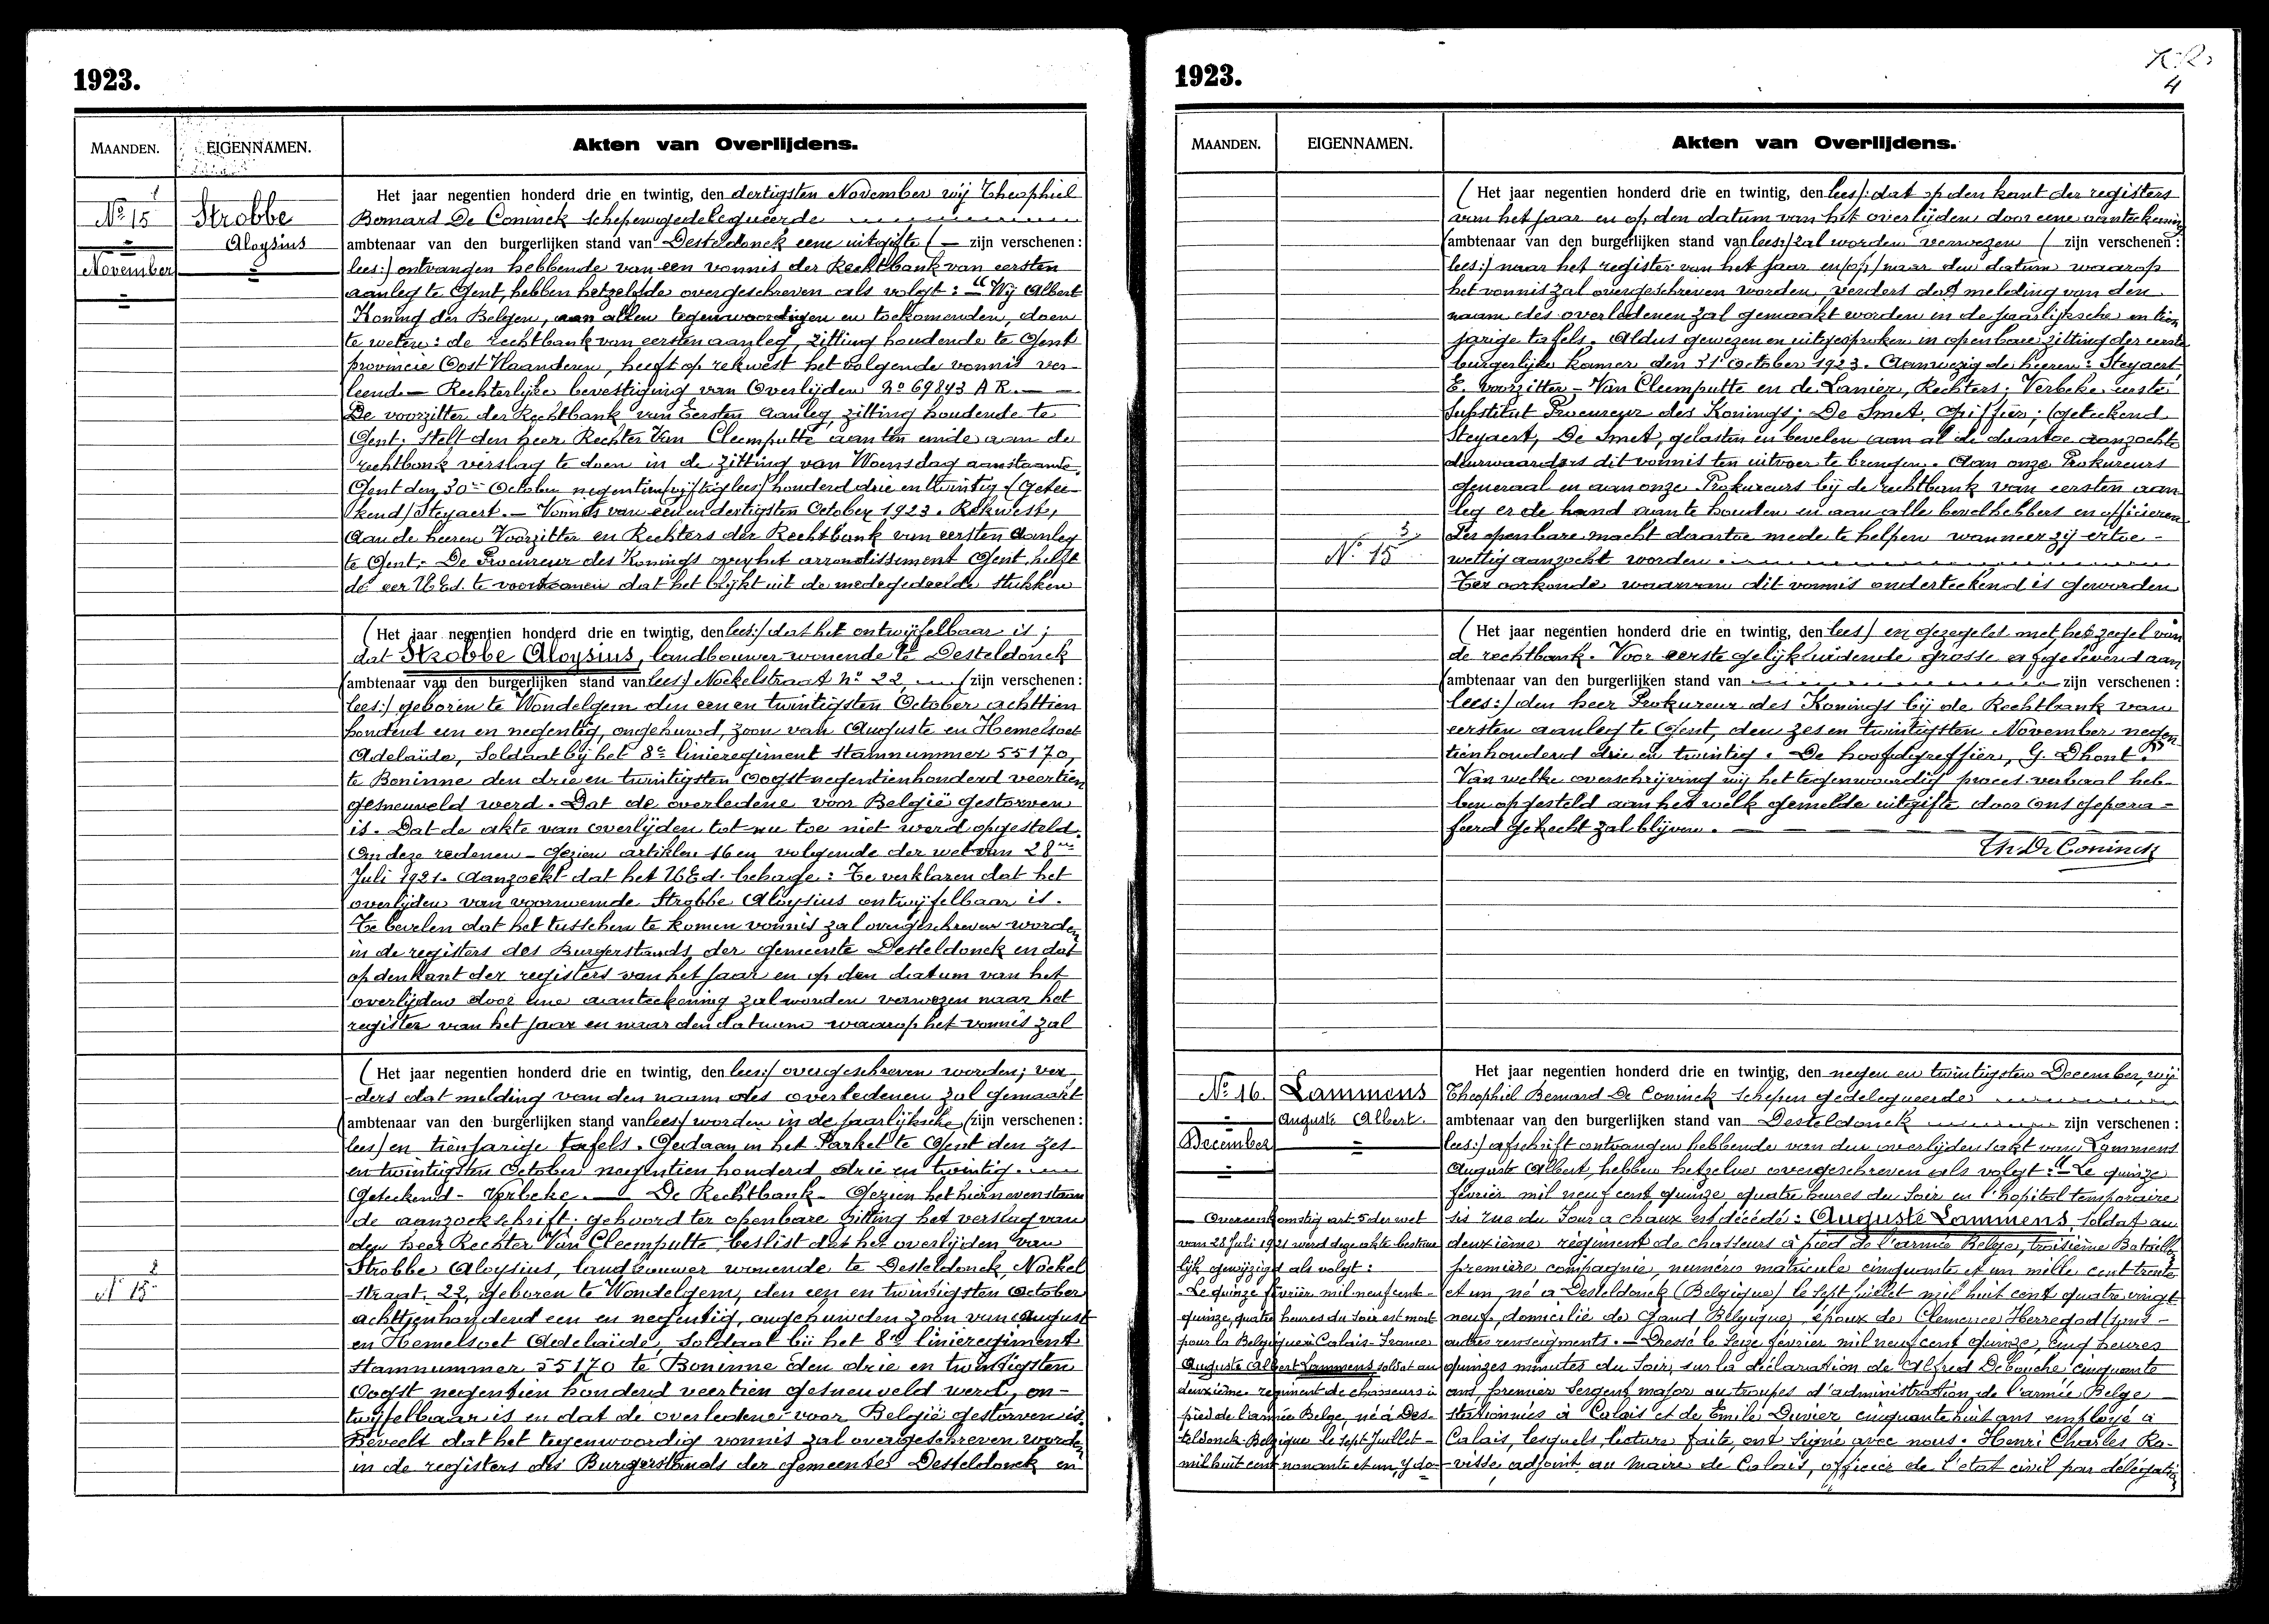 1923.
MAANDEN.
EIGENNAMEN.
Akten van Overlijdens.
1
Nº 15
November
Strobbe
Aloysius
Het jaar negentien honderd drie en twintig, den dertigsten November wij Theophiel
Bernard De Coninck schepen gedelegueerde
ambtenaar van den burgerlijken stand van Desteldonck eene uitgifte ( zijn verschenen :
lees:) ontvangen hebbende van een vonnis der Rechtbank van eersten
aanleg te Gent, hebben hetzelfde overgeschreven als volgt : " Wij Albert
Koning der Belgen, aan allen tegenwoordigen en toekomenden, doen
te weten : de rechtbank van eersten aanleg, zitting houdende te Gent
provincie Oost Vlaanderen, heeft op rekwest het volgende vonnis ver-
leend. — Rechterlijke bevestiging van Overlijden Nº 69843 A R. — —
De voorzitter der Rechtbank van Eersten aanleg, zitting houdende te
Gent, stelt den heer Rechter Van Cleemputte aan ten einde aan de
rechtbank verslag te doen in de zitting van Woensdag aanstaande,
Gent den 30en October negentien/vijftig lees/ honderd drie en twintig. (Getee-
kend) Steyaert. — Vonnis van een en dertigsten October 1923. Rekwest,
Aan de heeren Voorzitter en Rechters der Rechtbank van eersten aanleg
te Gent. De Procureur des Konings over het arrondissement Gent, heeft
de eer U Ed. te voorkomen dat het blijkt uit de medegedeelde stukken
(Het jaar negentien honderd drie en twintig, den lees:) dat het ontwijfelbaar is ;
dat Strobbe Aloysius, landbouwer wonende te Desteldonck
(ambtenaar van den burgerlijken stand van lees) Nockelstraat nº 22, (zijn verschenen :
lees:) geboren te Wondelgem den een en twintigsten October achttien
honderd een en negentig, ongehuwd, zoon van Auguste en Hemelsoet
Adelaïde, Soldaat bij het 8e linieregiment stamnummer 55170,
te Boninne den drie en twintigsten Oogst negentienhonderd veertien
gesneuveld werd. Dat de overledene voor België gestorven
is. Dat de akte van overlijden tot nu toe niet werd opgesteld.
Om deze redenen - Gezien artiklen 16 en volgende der wet van 28en
Juli 1921. Aanzoekt dat het U Ed. behage : Te verklaren dat het
overlijden van voornoemde Strobbe Aloysius ontwijfelbaar is.
Te bevelen dat het tusschen te komen vonnis zal overgeschreven worden
in de registers des Burgerstands der gemeente Desteldonck en dat
op den kant der registers van het jaar en op den datum van het
overlijden door eene aanteekening zal worden verwezen naar het
register van het jaar en naar den datum waarop het vonnis zal
2
Nº 15
(Het jaar negentien honderd drie en twintig, den lees:) overgeschreven worden; ver-
ders dat melding van den naam des overledenen zal gemaakt
(ambtenaar van den burgerlijken stand van lees) worden in de jaarlijksche (zijn verschenen :
lees) en tienjarige tafels. Gedaan in het Parket te Gent den zes
en twintigsten October negentien honderd drie en twintig.
Geteekend - Verbeke. — De Rechtbank - Gezien het hiernevenstaan
de aanzoekschrift; gehoord ter openbare zitting het verslag van
den heer Rechter Van Cleemputte, beslist dat het overlijden van
Strobbe Aloysius, landbouwer wonende te Desteldonck, Nockel
straat, 22, geboren te Wondelgem, den een en twintigsten October
achttienhonderd een en negentig, ongehuwden zoon van August
en Hemelsoet Adelaïde, Soldaat bij het 8e linieregiment
stamnummer 55170 te Boninne den drie en twintigsten
Oogst negentien honderd veertien gesneuveld werd, on-
twijfelbaar is en dat de overledene voor België gestorven is.
Beveelt dat het tegenwoordig vonnis zal overgeschreven worden
in de registers des Burgerstands der gemeente Desteldonck en
1923.
4
MAANDEN.
EIGENNAMEN.
Akten van Overlijdens.
(Het jaar negentien honderd drie en twintig, den lees): dat op den kant der registers
van het jaar en op den datum van het overlijden door eene aanteekening
(ambtenaar van den burgerlijken stand van lees:) zal worden verwezen ( zijn verschenen :
lees:) naar het register van het jaar en/op/naar den datum waarop
het vonnis zal overgeschreven worden, verders dat melding van den
naam des overledenen zal gemaakt worden in de jaarlijksche en tien
jarige tafels. Aldus gewezen en uitgesproken in openbare zitting der eerste
burgerlijke kamer, den 31n October 1923. Aanwezig de heeren : Steyaert
E. voorzitter - Van Cleemputte en de Lanier, Rechters; Verbeke eerste
Substitut Procureur des Konings; De Smet, Griffier; (geteekend
Steyaert, De Smet, gelasten en bevelen aan al de daartoe aanzochte
deurwaarders dit vonnis ten uitvoer te brengen. Aan onze Prokureurs
generaal en aan onze Prokureurs bij de rechtbank van eersten aan-
leg er de hand aan te houden en aan alle bevelhebbers en officieren
3
Nº 15
der openbare macht daartoe mede te helpen wanneer zij ertoe -
wettig aanzocht worden.
Ter oorkonde waarvan dit vonnis onderteekend is geworden
(Het jaar negentien honderd drie en twintig, den lees) en gezegeld met het zegel van
de rechtbank. Voor eerste gelijkluidende grosse afgeleverd aan
(ambtenaar van den burgerlijken stand van zijn verschenen :
lees:) den heer Prokureur des Konings bij de Rechtbank van
eersten aanleg te Gent, den zes en twintigsten November negen
tienhonderd drie en twintig. De hoofdgreffier, G. Dhont."
Van welke overschrijving wij het tegenwoordig proces-verbaal heb-
ben opgesteld aan het welk gemelde uitgifte door ons gepara-
feerd gehecht zal blijven.
Th. De Coninck
Nº 16.
December
Lammens
Auguste Albert.
Het jaar negentien honderd drie en twintig, den negen en twintigsten December, wij
Theophiel Bernard De Coninck Schepen gedelegueerde
ambtenaar van den burgerlijken stand van Desteldonck zijn verschenen :
lees:) afschrift ontvangen hebbende van den overlijdensakt van Lammens
Auguste Albert, hebben hetzelve overgeschreven als volgt : " Le quinze
février mil neuf cent quinze, quatre heures du Soir en l'hopital temporaire
sis rue du Four a chaux est décédé : Auguste Lammens, Soldat au
deuxième régiment de chasseurs à pied de l'armée Belge, troisième Bataillon
première compagnie, numéro matricule cinquante et un mille cent trente
et un, né a Desteldonck (Belgique) le Sept juillet mil huit cent quatre vingt
neuf, domicilié de Gand Belgique, époux de Clemence Herregod (sans -
autres renseigments. — Dressé le Seize février mil neuf cent quinze, cinq heures
quinzes minutes du Soir, sur la déclaration de Alfred Debouche cinquante
ans premier Sergent major au troupes d'administration de l'armée Belge
stationnées à Calais et de Emile Duvier cinquante huit ans employé à
Calais, lesquels, lecture faite, ont signé avec nous. Henri Charles Ra-
visse, adjoint au Maire de Calais, officier de l'etat civil par délégation
— Overeenkomstig art. 5 der wet
van 28 Juli 1921 werd deze akte bestuur
lijk gewijzigd als volgt :
- Le quinze février mil neuf cent -
quinze, quatre heures du Soir est mort
pour la Belgique à Calais France
Auguste Albert Lammens soldat au
deuxième régiment de chasseurs à
pied de l'armée Belge, né à Des-
teldonck Belgique le sept Juillet -
mil huit cent nonante et un, y do-